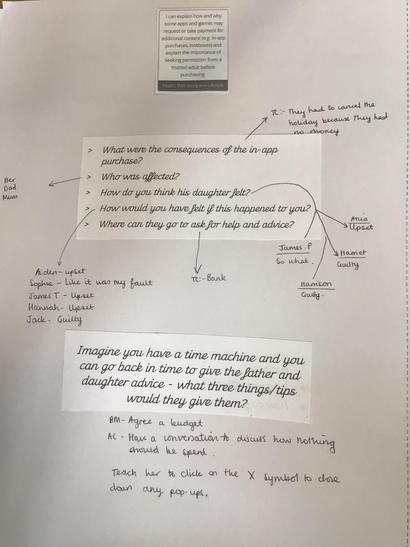 I can explain how and why
some apps and games may
request or take payment for
additional content (e.g. in-app
purchases, lootboxes) and
explain the importance of
seeking permission from a
trusted adult before
purchasing
Health, Well-being and Lifestyle
π:- They had to cancel the
holiday because they had
no money
> What were the consequences of the in-app
purchase?
> Who was affected?
> How do you think his daughter felt?
> How would you have felt if this happened to you?
> Where can they go to ask for help and advice?
Her
Dad
Mum
Ania
Upset
James.P
So what.
Harriet
Guilty
Guilty.
π:- Bank
Aiden - upset
Sophie - Like it was my fault
James T - Upset
Hannah - Upset
Jack - Guilty
Imagine you have a time machine and you
can go back in time to give the father and
daughter advice - what three things/tips
would they give them?
AM - Agree a budget
AC - Have a conversation to discuss how nothing
should be spent.
Teach her to click on the X symbol to close
down any pop-ups.